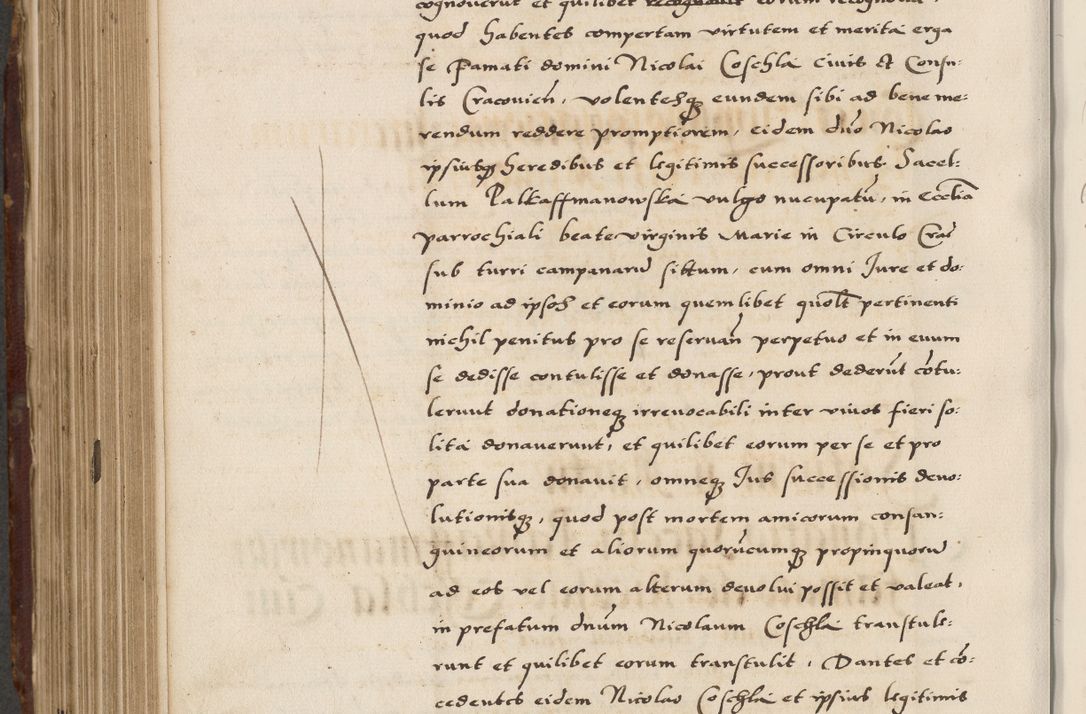 cognoverūt et quilibet recognovit eorum recognovit,
quod habentes compertam virtutem et merita erga
se Famati domini Nicolai Coschla Civis et Consu-
lis Cracovień, volentesqꝫ eundem sibi ad bene me-
rendum reddere promptiorem, eidem dño Nicolao
ipsiusqꝫ heredibus et legitimis successoribus Sacel-
lum Palkaffmanowska vulgo nūcupatū, in Ecclīa
parrochiali beate virginis Marie in Circulo Crac̄
sub turri campanarū situm, cum omni Jure et do-
minio ad ipsos et eorum quemlibet quolt pertinenti
nichil penitus pro se reservań perpetuo et in evum
se dedisse contulisse et donasse, prout dederūt cōtu-
lerunt donationeqꝫ irrevocabili inter vivos fieri so-
lita donaverunt, et quilibet eorum per se et pro
parte sua donavit, omneqꝫ Jus successionis devo-
lutionisqꝫ, quod post mortem amicorum consan-
guineorum et aliorum quorūcumqꝫ propinquorū
ad eos vel eorum alterum devolvi possit et valeat,
in prefatum dnūm Nicolaum Coschla transtule-
runt et quilibet eorum transtulit, Dantes et cō-
cedentes eidem Nicolao Coschla et ipsius legitimis